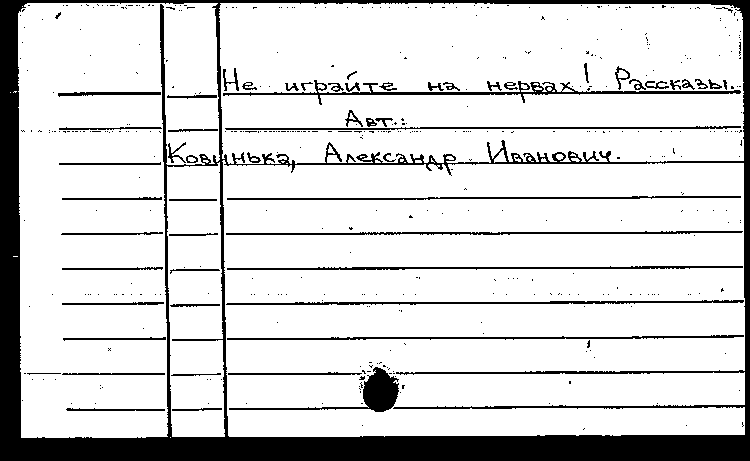 Не играйте на нервах! Рассказы.
Авт.:
Ковинька, Александр Иванович.